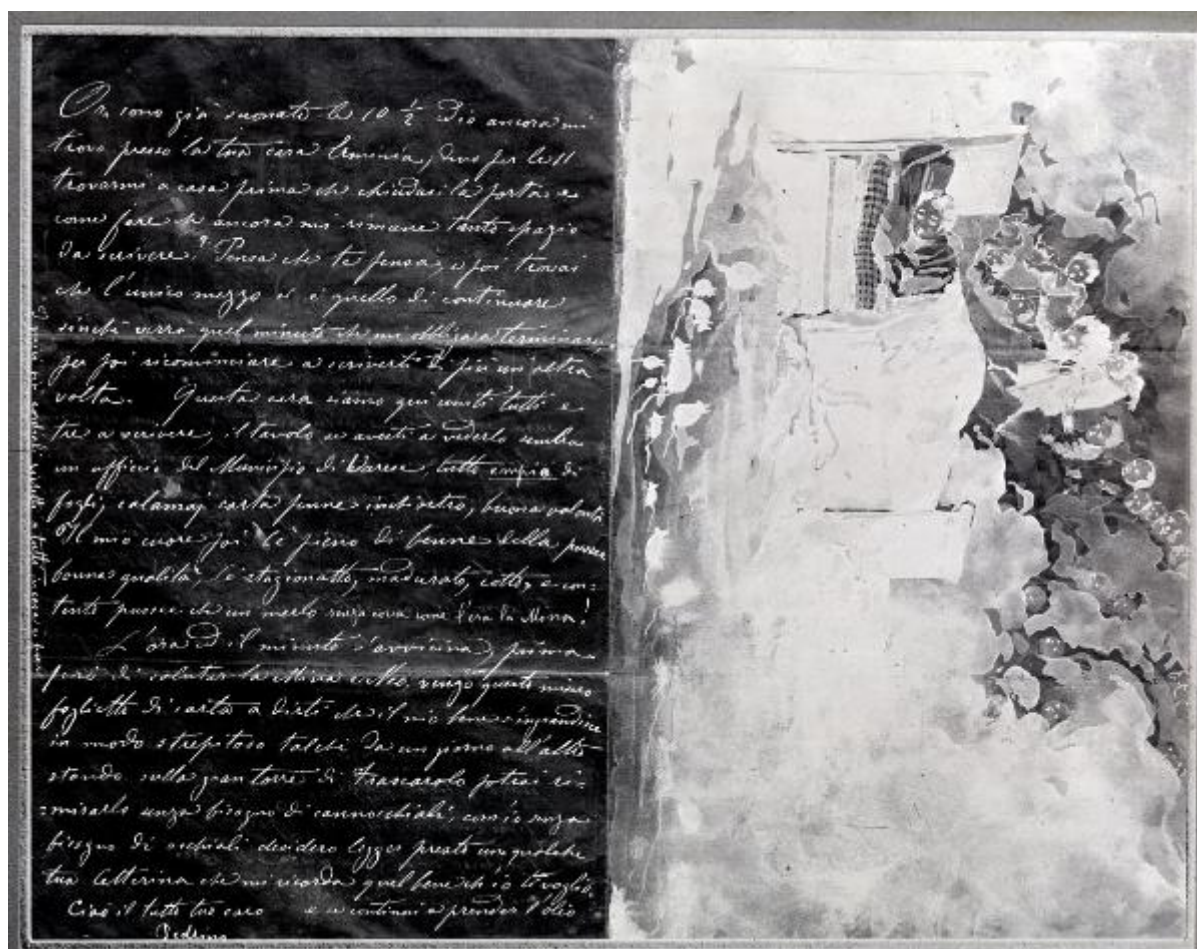 Or sono già suonate le 10 ½ Dio ancora mi
trovo presso la tua cara Erminia, devo per le 11
trovarmi a casa prima che chiudasi la porta e
come fare che ancora mi rimane tanto spazio
da scrivere? Pensa che te pensa, e poi trovai
che l'unico mezzo si è quello di continuare
sinchè verrà quel minuto che mi obbliga a terminare
per poi ricominciare a scriverti per un'altra
volta. Questa sera siamo qui uniti tutti e
tre a scrivere, il tavolo se avesti a vederlo sembra
un officio del Municipio di Varese, tutto empia di
fogli, calamaj carta penne inchiostro, buona volontà
Il mio cuore poi l'è pieno di benne della
bounas qualità, l'è stagionatto, madurato, cotto, e con-
tento pussee che un merlo senza cova come l'era la Mora!
L'ora ed il minuto s'avvicina, prima
però di salutar la, vengo questo misero
foglietto di carta a dirti che il mio bene s'ingrandisce
in modo strepitoso talchè da un giorno all'altro
stando sulla gran torre di Frascarolo potrai ri-
mirarlo senza bisogno di cannocchiali, com'io senza
bisogno di occhiali desidero legger presto una qualche
tua letterina che mi ricorda quel bene ch'io ti voglio
Ciao il tutto tuo caro e se continui a prender l'olio